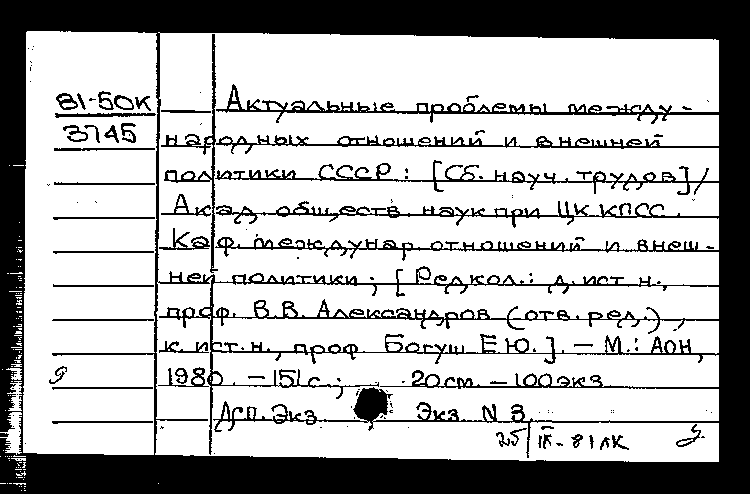 81-50К
3745
Актуальные проблемы между-
народных отношений и внешней
политики СССР: [Сб. науч. трудов]/
Акад. обществ. наук при ЦК КПСС.
Каф. междунар. отношений и внеш-
ней политики; [Редкол.: д. ист. н.,
проф. В.В. Александров (отв. ред.),
к. ист. н., проф. Богуш Е.Ю.]. – М.: АОН,
1980. – 151 с.; 20 см. – 100 экз
Дсп. Экз. Экз N 3.
25/IX - 81 ЛК